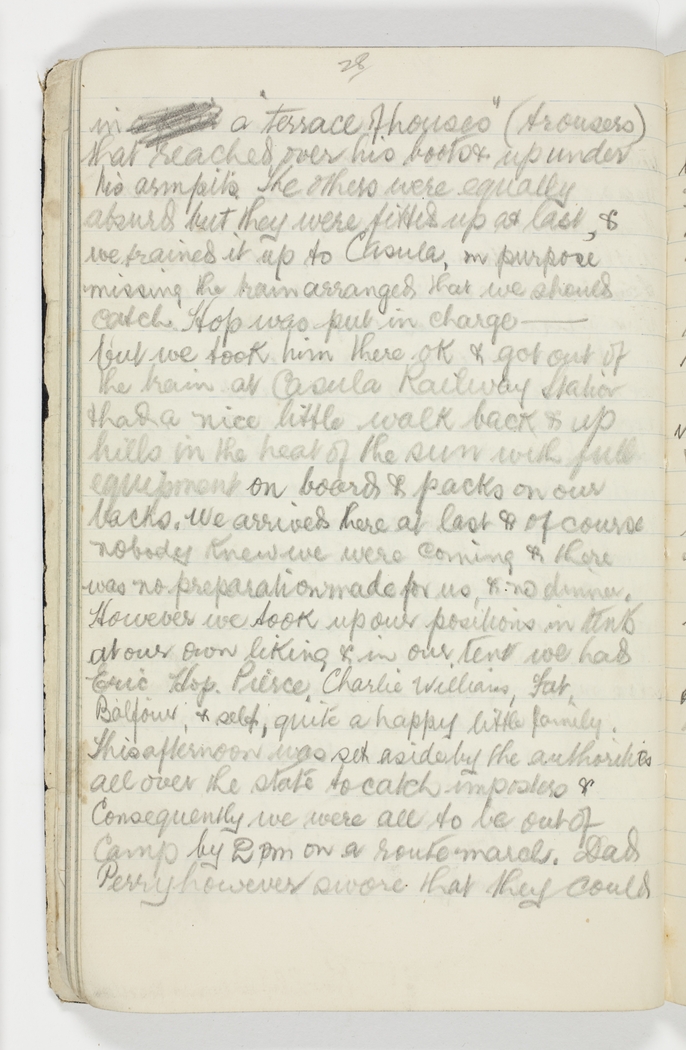 28
in a "terrace of houses" (trousers)
that reached over his boots & up under
his armpits. The others were equally
absurd but they were fitted up at last, &
we trained it up to Casula, on purpose
missing the train arranged that we should
catch. Hop was put in charge —
but we took him there ok & got out of
the train at Casula Railway Station
& had a nice little walk back & up
hills in the heat of the sun with full
equipment on board & packs on our
backs. We arrived here at last & of course
nobody knew we were coming & there
was no preparation made for us, & no dinner.
However we took up our positions in tents
at our own liking & in our tent we had
Eric Hop. Pierce, Charlie Williams, Fat,
Balfour, & self, quite a happy little family.
This afternoon was set aside by the authorities
all over the state to catch imposters &
Consequently we were all to be out of
Camp by 2 pm on a route march. Dad
Perry however swore that they could